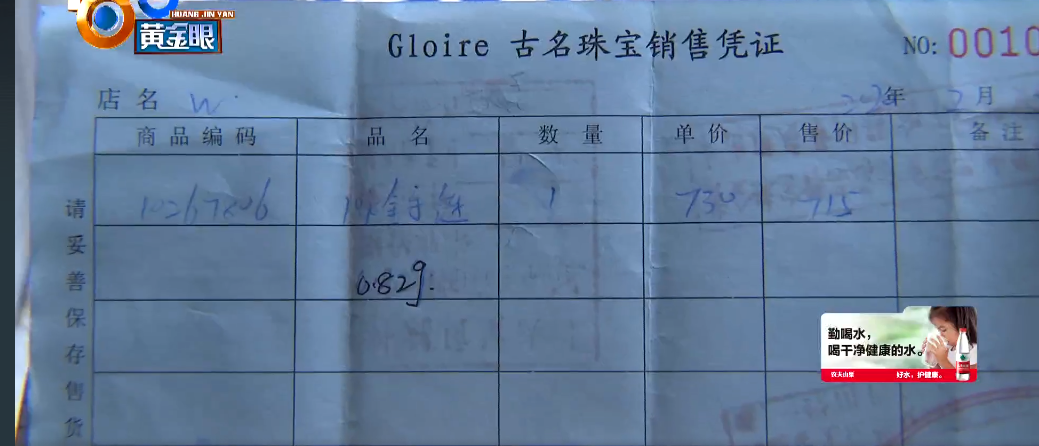 HUANG JIN YAN
黄金眼
Gloire 古名珠宝销售凭证
NO: 0010
店名 W.
年 2月
商品编码 品名 数量 单价 售价 备注
10267806 1 730 715
0.82g.
请妥善保存售货
勤喝水,
喝干净健康的水。
农夫山泉 好水，护健康。